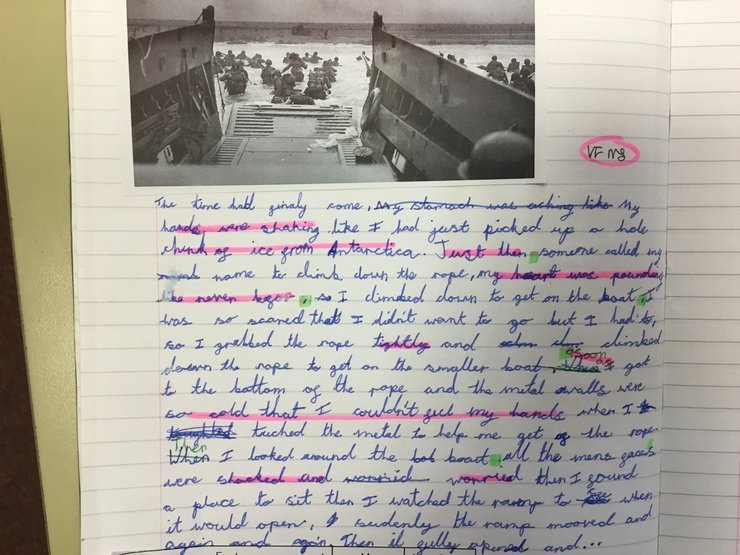 VF
The time had finaly come, my stomach was aching like My
hands were shaking like I had just picked up a hole
chunk of ice from Antarctica. Just then, someone called my
name to climb down the rope, my heart was pounding
like never befor, so I climbed down to get on the boat, I
was so scared that I didn't want to go but I had to,
so I grabbed the rope tightly and climbed
down the rope to get on the smaller boat. as soon as I got
to the bottom of the rope and the metal walls were
so cold that I couldn't feel my hands when I
tuched the metal to help me get of the rope
Then When I looked around the boat, all the mens faces
were shocked and worried worried then I found
a place to sit then I watched the ramp to see when
it would open, sudenly the ramp mooved and
again and again. Then it fully opened and...